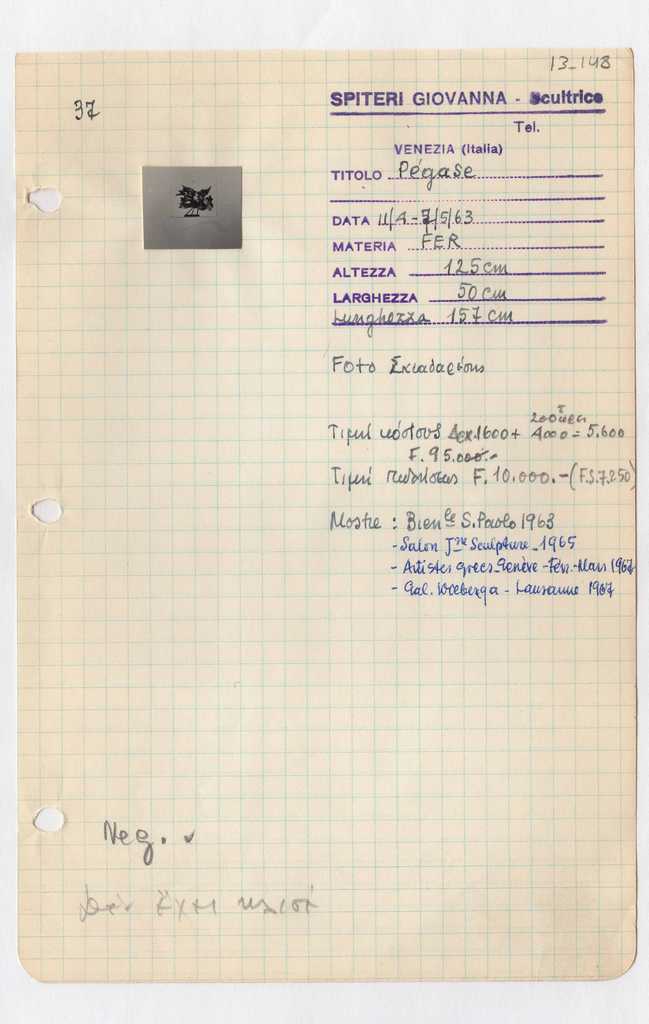 13-148
37
SPITERI GIOVANNA - Scultrice
Tel.
VENEZIA (Italia)
TITOLO Pégase
DATA 11/4-7/5/63
MATERIA FER
ALTEZZA 125 cm
LARGHEZZA 50 cm
Lunghezza 157 cm
Foto Σκιαδαρέσης
200 ὧρες
Τιμή κόστους Δρχ. 1600 + 4000 = 5.600
F. 95.000.-
Τιμή πωλήσεως F. 10.000.- (F.S. 7.250)
Mostre : Bienle S. Paolo 1963
- Salon Jne Sculpture - 1965
- Artistes grecs Genève - Fév.-Mars 1967
- Gal. - Lausanne 1967
Neg. ✓
δὲν ἔχει